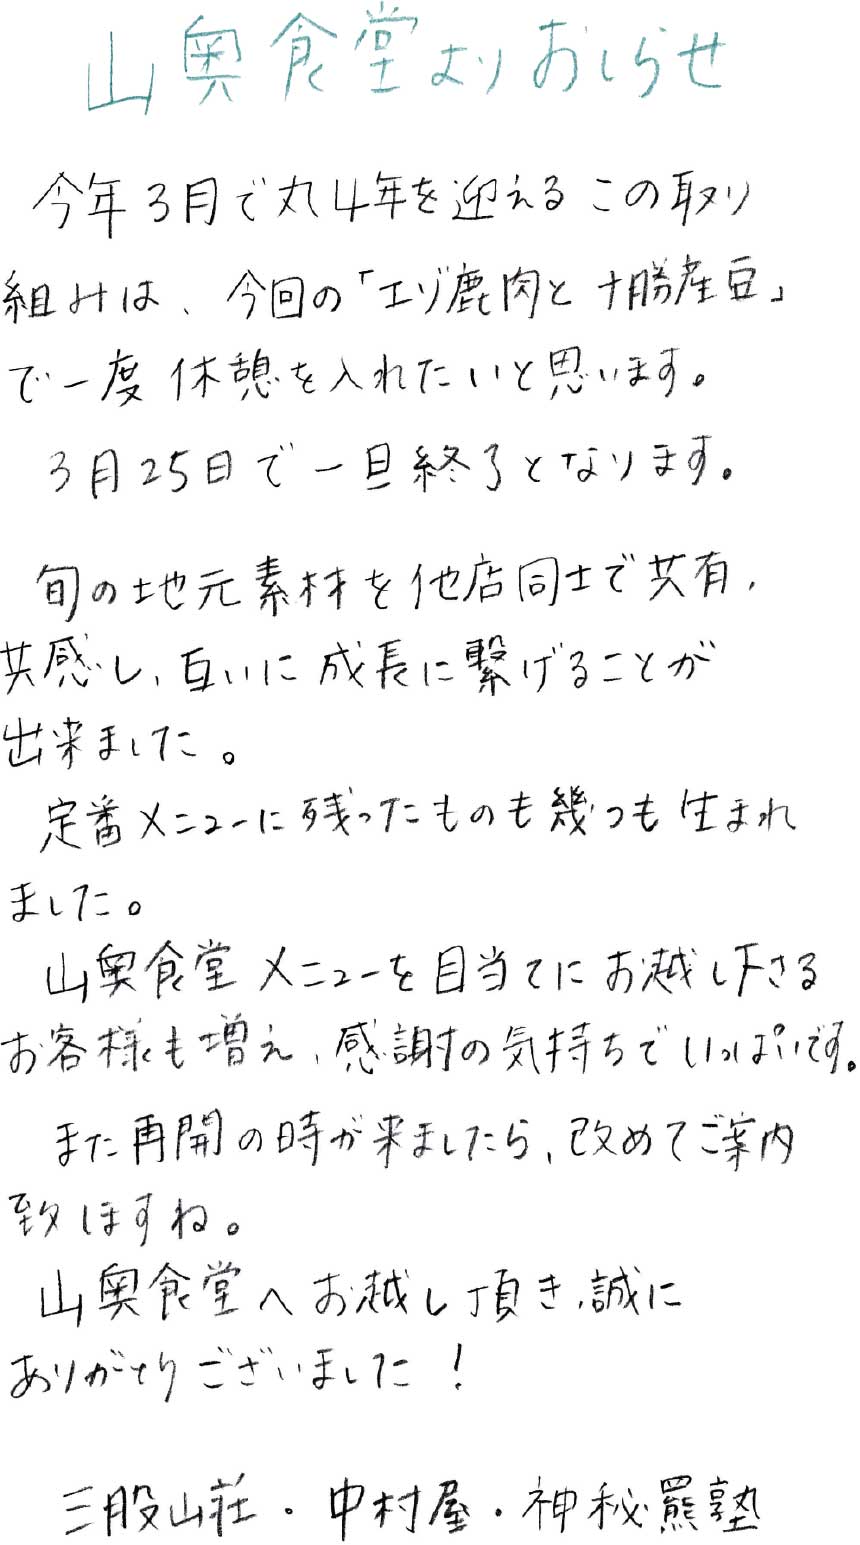 山奥食堂よりおしらせ
今年3月で丸4年を迎えるこの取り
組みは、今回の「エゾ鹿肉と十勝産豆」
で一度休憩を入れたいと思います。
3月25日で一旦終了となります。
旬の地元素材を他店同士で共有,
共感し、互いに成長に繋げることが
出来ました。
定番メニューに残ったものも幾つも生まれ
ました。
山奥食堂メニューを目当てにお越し下さる
お客様も増え、感謝の気持ちでいっぱいです。
また再開の時が来ましたら、改めてご案内
致しますね。
山奥食堂へお越し頂き、誠に
ありがとうございました!
三股山荘・中村屋・神秘羆塾